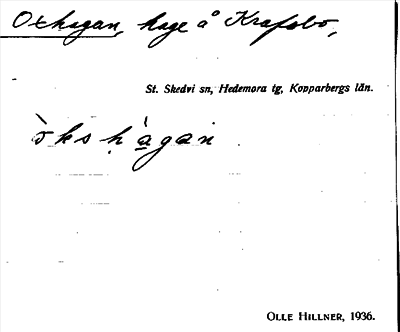 Oxhagan, hage å Krafsbo,
St. Skedvi sn, Hedemora tg, Kopparbergs län.
ò̀kshàgan
OLLE HILLNER, 1936.